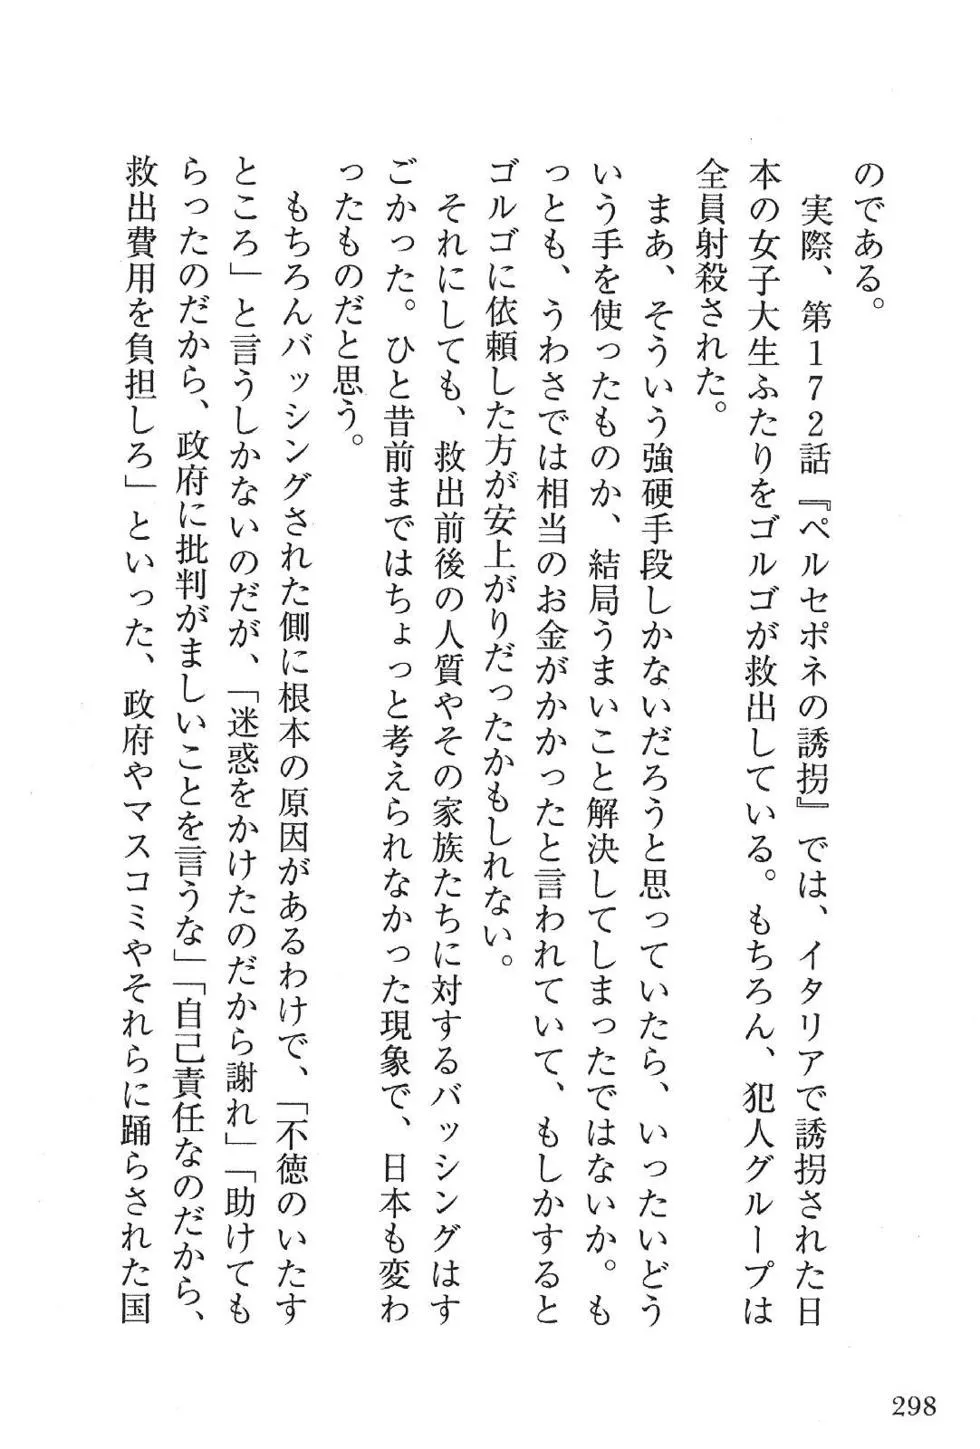 のである。
　実際、第172話『ペルセポネの誘拐』では、イタリアで誘拐された日
本の女子大生ふたりをゴルゴが救出している。もちろん、犯人グループは
全員射殺された。
　まあ、そういう強硬手段しかないだろうと思っていたら、いったいどう
いう手を使ったものか、結局うまいこと解決してしまったではないか。も
っとも、うわさでは相当のお金がかかったと言われていて、もしかすると
ゴルゴに依頼した方が安上がりだったかもしれない。
　それにしても、救出前後の人質やその家族たちに対するバッシングはす
ごかった。ひと昔前まではちょっと考えられなかった現象で、日本も変わ
ったものだと思う。
　もちろんバッシングされた側に根本の原因があるわけで、「不徳のいたす
ところ」と言うしかないのだが、「迷惑をかけたのだから謝れ」「助けても
らったのだから、政府に批判がましいことを言うな」「自己責任なのだから、
救出費用を負担しろ」といった、政府やマスコミやそれらに踊らされた国
298